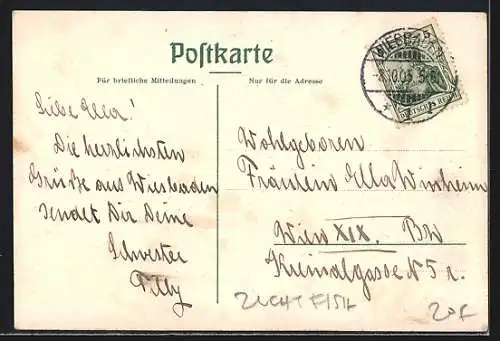 Postkarte
Für briefliche Mitteilungen
Nur für die Adresse
WIESBADEN
DEUTSCHES REICH
Liebe Ella!
Die herzlichsten
Grüße aus Wiesbaden
sendet Dir Deine
Schwester
Tilly
Wohlgeboren
Fräulein Ella Winsheim
Wien XIX.
N 5